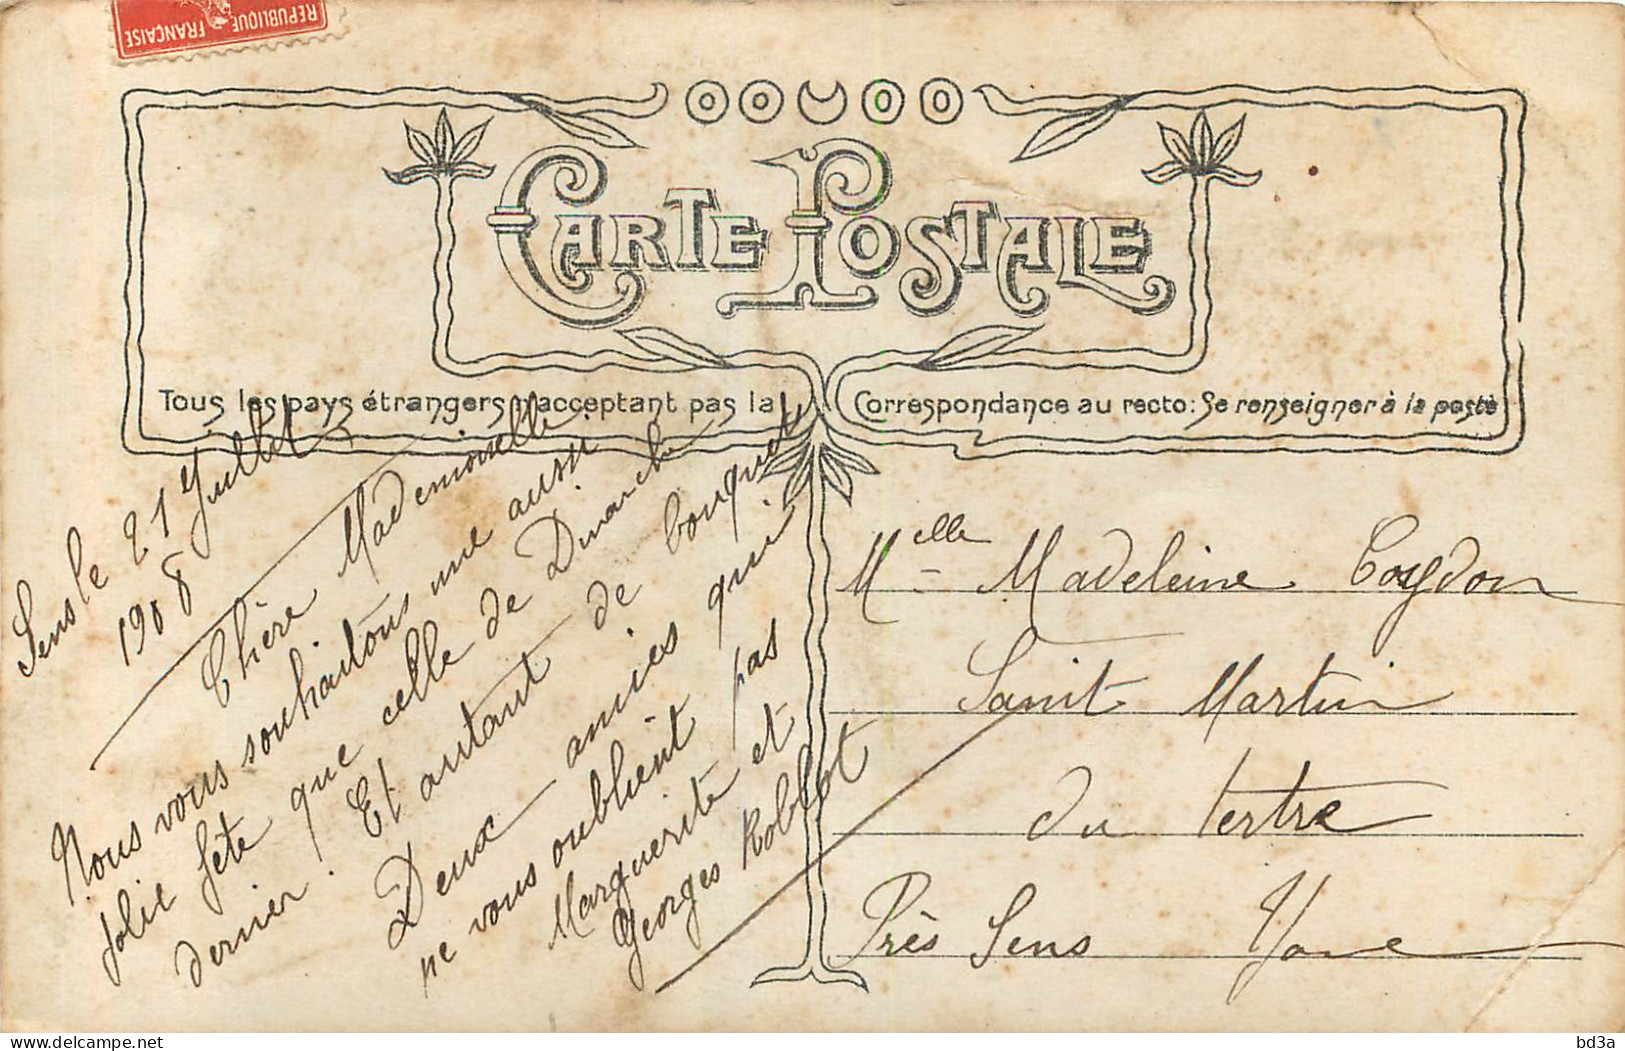 REPUBLIQUE FRANÇAISE
CARTE POSTALE
Tous les pays étrangers n'acceptant pas la Correspondance au recto: Se renseigner à la poste
Sens le 21 Juillet
1908
Chère Mademoiselle
Nous vous souhaitons une aussi
jolie fête que celle de Dimanche
dernier! Et autant de bouquets
Deux amies qui
ne vous oublient pas
Marguerite et
Georges Roblot
Melle Madeleine Coydon
Saint Martin
du tertre
Près Sens Yonne
delcampe.net
bd3a